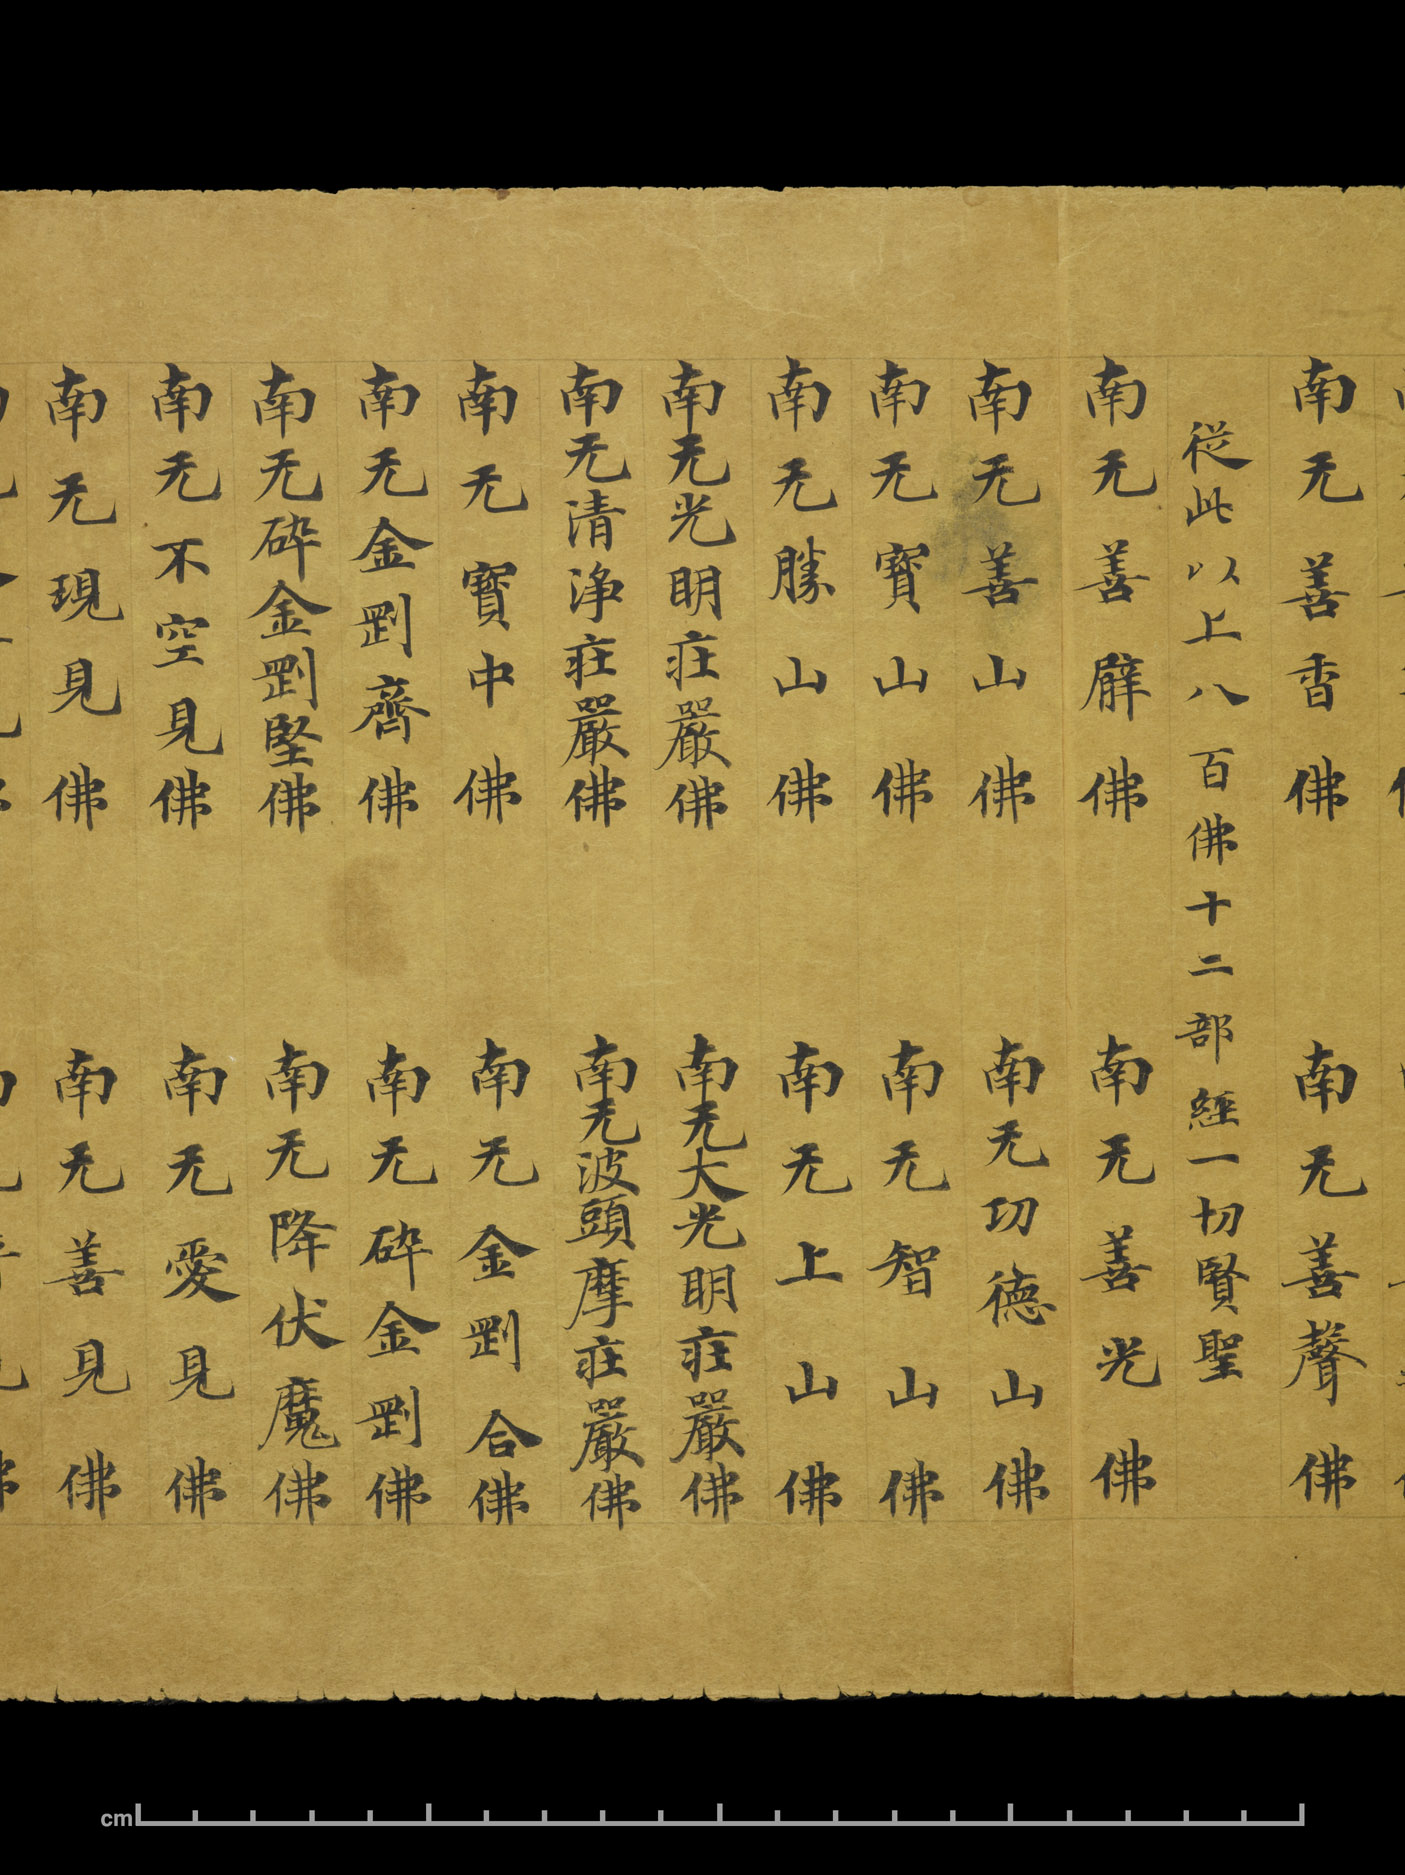 南无善香佛　南无善聲佛
從此以上八百佛十二部經一切賢聖
南无善臂佛　南无善光佛
南无善山佛　南无功德山佛
南无寶山佛　南无智山佛
南无勝山佛　南无上山佛
南无光明莊嚴佛　南无大光明莊嚴佛
南无清淨莊嚴佛　南无波頭摩莊嚴佛
南无寶中佛　南无金剛合佛
南无金剛齊佛　南无碎金剛佛
南无碎金剛堅佛　南无降伏魔佛
南无不空見佛　南无愛見佛
南无現見佛　南无善見佛
cm